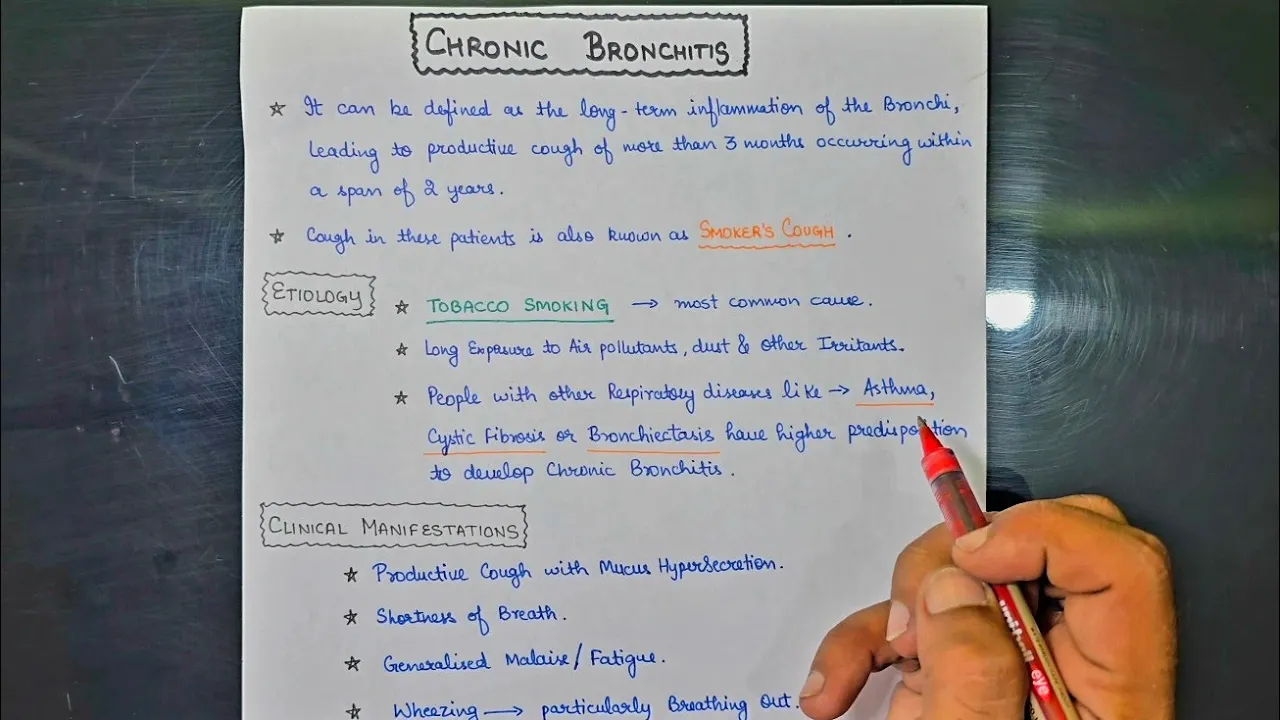 CHRONIC BRONCHITIS
☆ It can be defined as the long-term inflammation of the Bronchi,
leading to productive cough of more than 3 months occurring within
a span of 2 years.
☆ Cough in these patients is also known as SMOKER'S COUGH.
ETIOLOGY
☆ TOBACCO SMOKING → most common cause.
☆ Long Exposure to Air pollutants, dust & other Irritants.
☆ People with other Respiratory diseases like → Asthma,
Cystic Fibrosis or Bronchiectasis have higher predisposition
to develop Chronic Bronchitis.
CLINICAL MANIFESTATIONS
☆ Productive Cough with Mucus Hypersecretion.
☆ Shortness of Breath.
☆ Generalised Malaise/Fatigue.
☆ Wheezing → particularly Breathing Out.
uni-ball eye